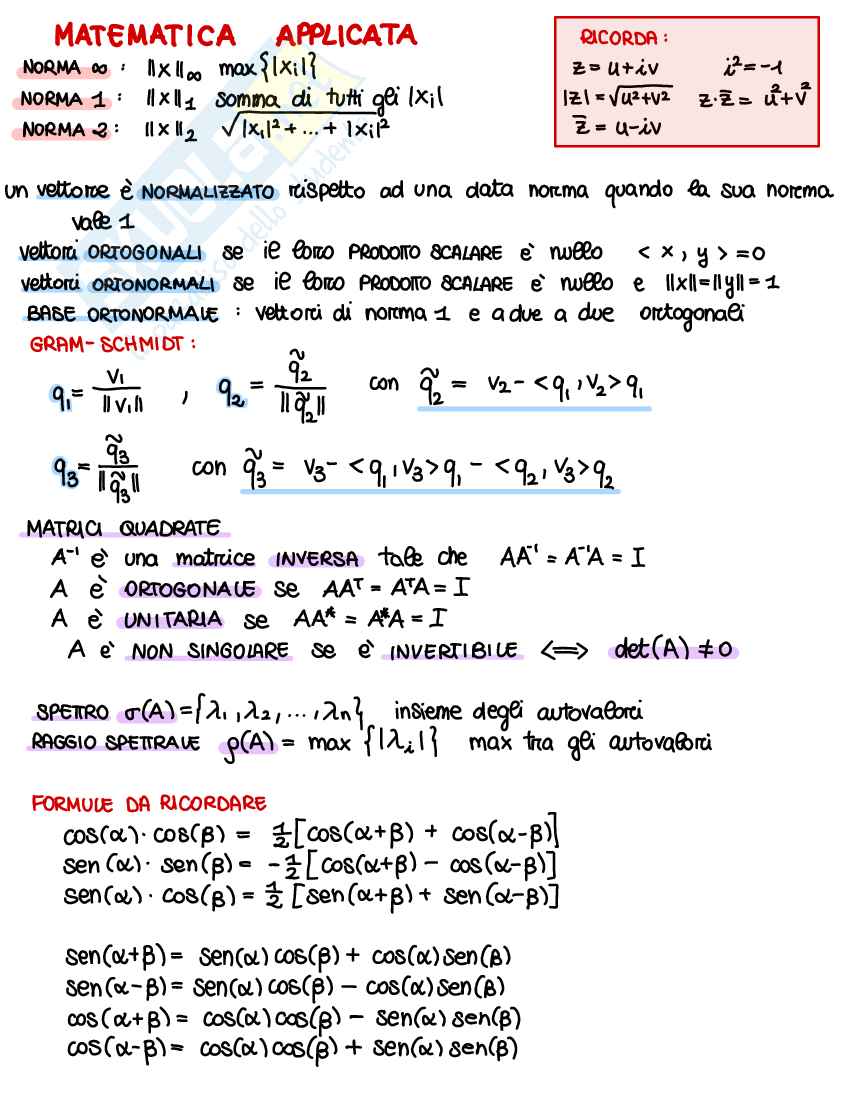 MATEMATICA APPLICATA
NORMA ∞ : ||x||∞ max{|xi|}
NORMA 1 : ||x||₁ somma di tutti gli |xi|
NORMA 2 : ||x||₂ √|x₁|²+...+|xi|²
RICORDA :
z = u+iv i² = -1
|z| = √u²+v² z·z̅ = u²+v²
z̅ = u-iv
un vettore è NORMALIZZATO rispetto ad una data norma quando la sua norma
vale 1
vettori ORTOGONALI se il loro PRODOTTO SCALARE è nullo < x , y > = 0
vettori ORTONORMALI se il loro PRODOTTO SCALARE è nullo e ||x||=||y||= 1
BASE ORTONORMALE : vettori di norma 1 e a due a due ortogonali
GRAM-SCHMIDT :
q₁ = v₁/||v₁|| , q₂ = q̃₂/||q̃₂|| con q̃₂ = v₂ - <q₁,v₂>q₁
q₃ = q̃₃/||q̃₃|| con q̃₃ = v₃ - <q₁,v₃>q₁ - <q₂,v₃>q₂
MATRICI QUADRATE
A⁻¹ è una matrice INVERSA tale che AA⁻¹ = A⁻¹A = I
A è ORTOGONALE se AAᵀ = AᵀA = I
A è UNITARIA se AA* = A*A = I
A è NON SINGOLARE se è INVERTIBILE <=> det(A) ≠ 0
SPETTRO σ(A) = {λ₁, λ₂, ..., λn} insieme degli autovalori
RAGGIO SPETTRALE ρ(A) = max {|λi|} max tra gli autovalori
FORMULE DA RICORDARE
cos(α)·cos(β) = 1/2[cos(α+β) + cos(α-β)]
sen(α)·sen(β) = -1/2[cos(α+β) - cos(α-β)]
sen(α)·cos(β) = 1/2[sen(α+β) + sen(α-β)]
sen(α+β) = sen(α)cos(β) + cos(α)sen(β)
sen(α-β) = sen(α)cos(β) - cos(α)sen(β)
cos(α+β) = cos(α)cos(β) - sen(α)sen(β)
cos(α-β) = cos(α)cos(β) + sen(α)sen(β)